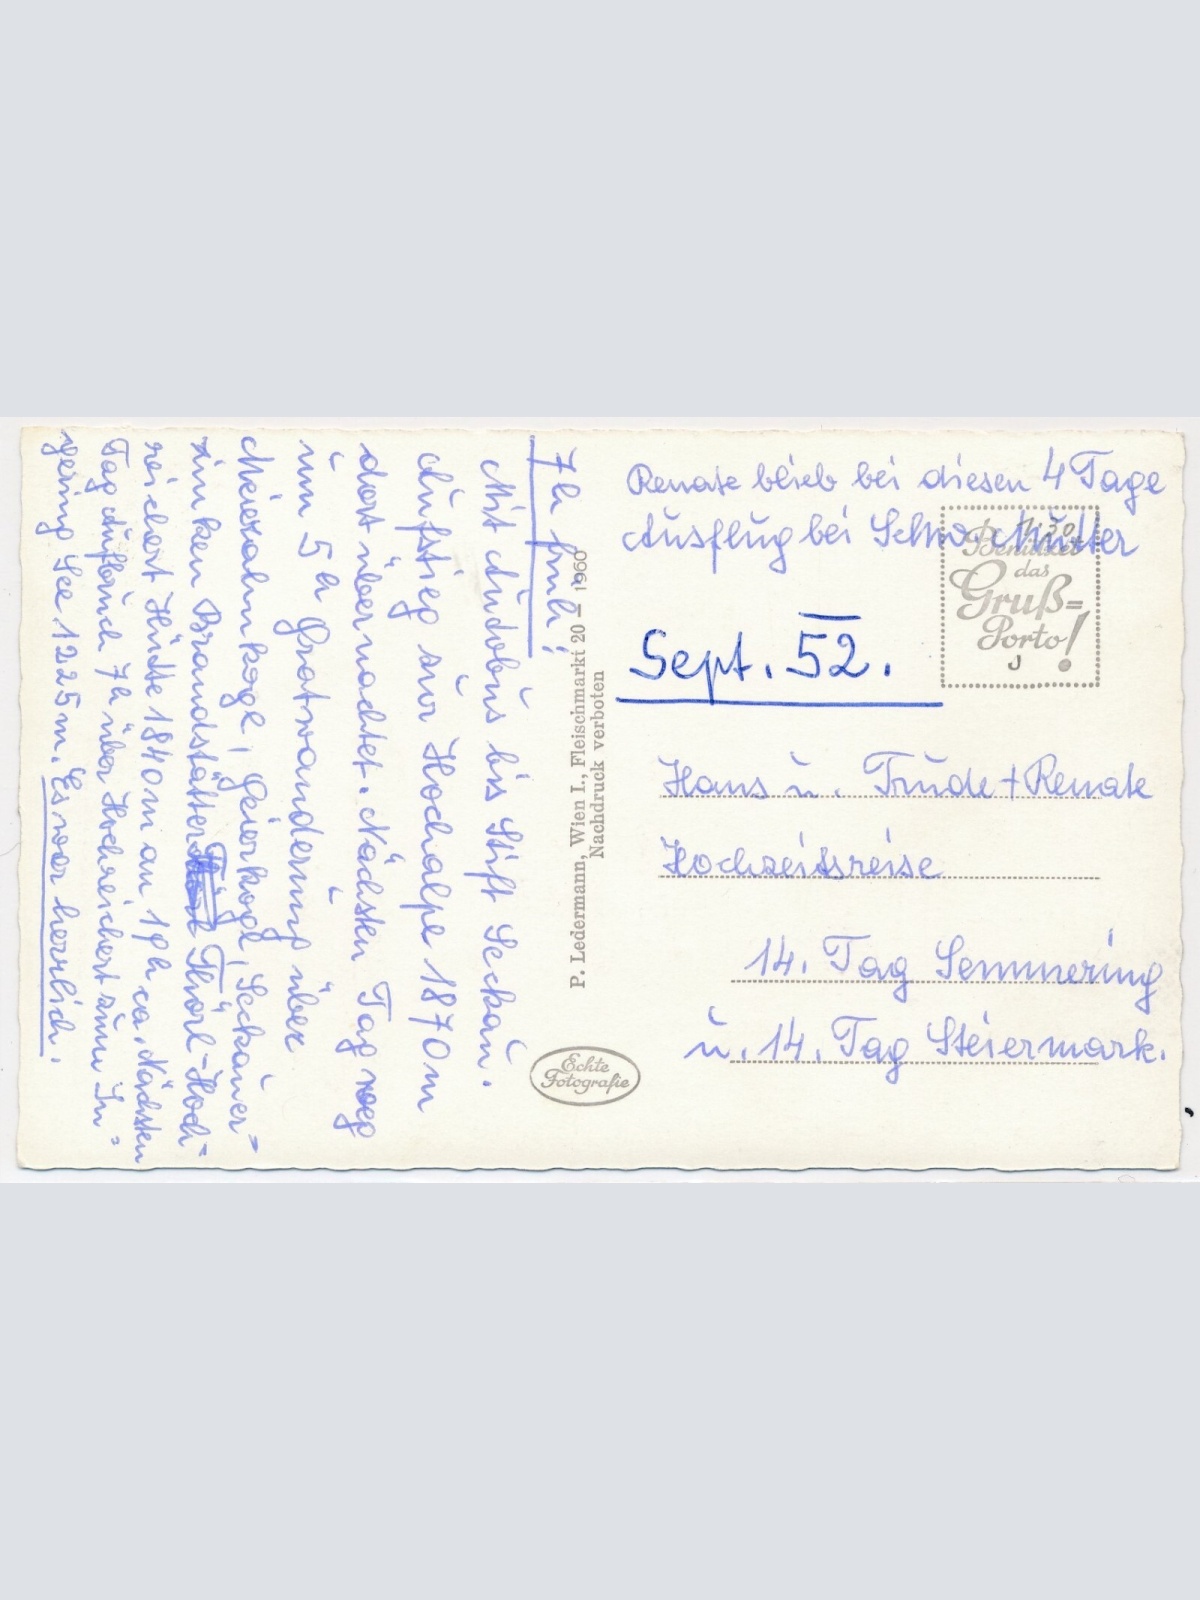 7h früh:
Mit Autobus bis Stift Seckau.
Aufstieg zur Hochalpe 1870m
dort übernachtet. Nächsten Tag weg
um 5h Gratwanderung über
Maieralmkogl, Geierkogl, Seckauer-
zinken Brandstätter Thörl-Hoch-
reichert Hütte 1840m an 19h ca. Nächsten
Tag Aufbruch 7h über Hochreichert zum In=
gering See 1225m. Es war herrlich.
P. Ledermann, Wien I., Fleischmarkt 20 — 1960
Nachdruck verboten
Echte
Fotografie
Renate blieb bei diesen 4 Tage
Ausflug bei Schw. Mutter
Benützet
das
Gruß=
Porto!
J
Sept. 52.
Hans u. Trude + Renate
Hochzeitsreise
14. Tag Semmering
u. 14. Tag Steiermark.